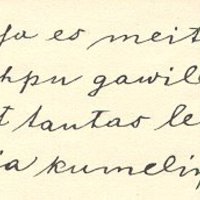 Jo es meit
hpu gawil
t tautas le
ia kumelin